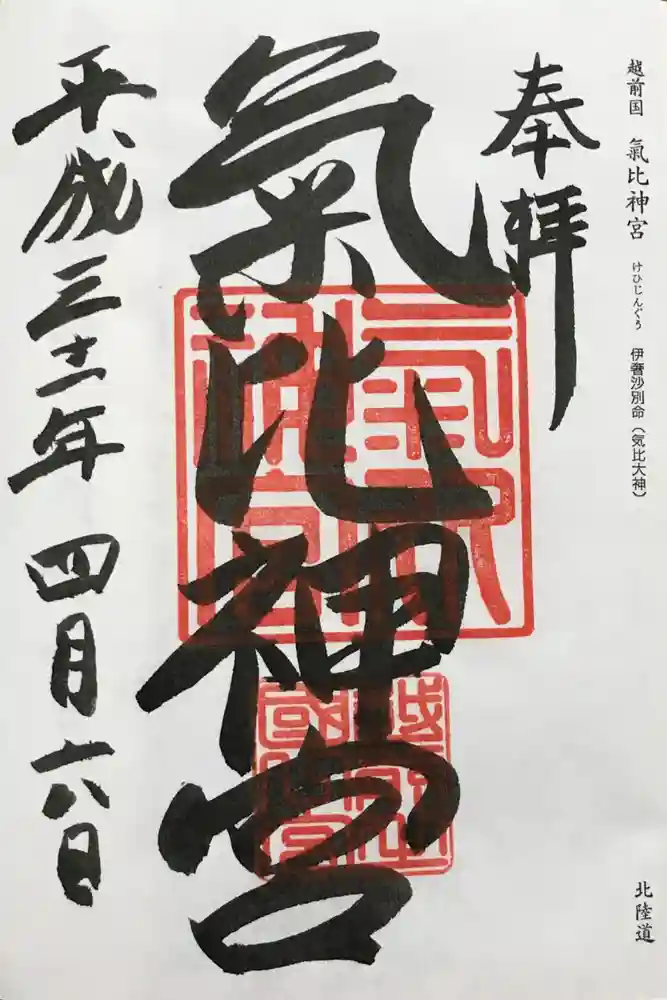 越前国 氣比神宮 けひじんぐう 伊奢沙別命(気比大神) 北陸道
奉拝
氣比神宮
平成三十一年 四月六日
氣比
神宮